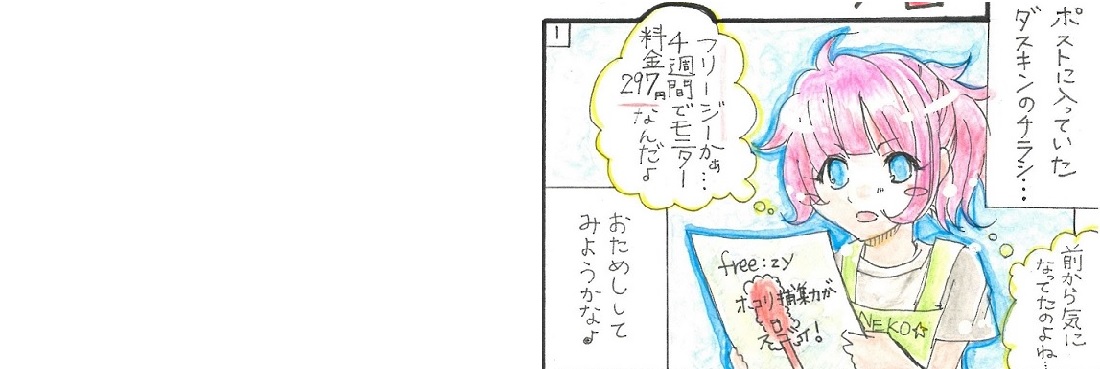 ポストに入っていた
ダスキンのチラシ…
1
フリージーかぁ…
4週間でモニター
料金
297円
なんだ♪
前から気に
なってたのよね…
free:zy
ホコリ捕集力が
スゴイ!
NEKO☆
おためしして
みようかな♪